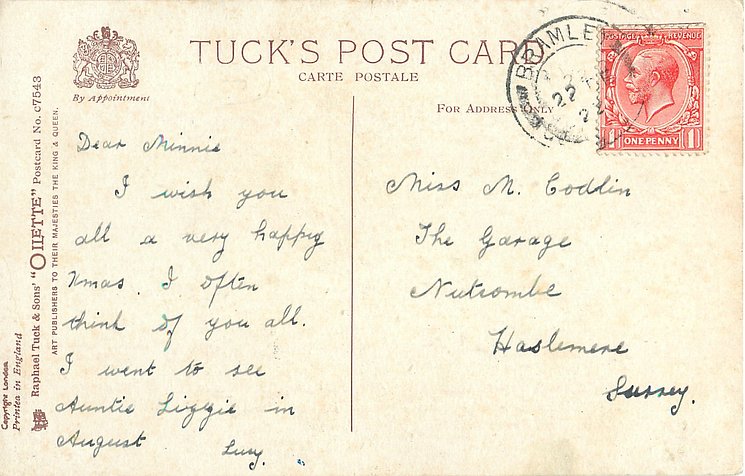 TUCK'S POST CARD
CARTE POSTALE
By Appointment
For Address Only
Raphael Tuck & Sons' "OILETTE" Postcard No. C7543
ART PUBLISHERS TO THEIR MAJESTIES THE KING & QUEEN.
Copyright London
Printed in England
BRAMLE
22
POSTAGE REVENUE
1 ONE PENNY 1
Dear Minnie
I wish you
all a very happy
Xmas. I often
think of you all.
I went to see
Auntie Liggie in
August
Lucy.
Miss M. Codlin
The Garage
Nutcombe
Haslemere
Surrey.